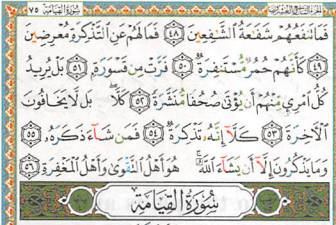 سُورَةُ القِيَامَة ٧٥
فَمَا تَنفَعُهُمْ شَفَـٰعَةُ ٱلشَّـٰفِعِينَ ٤٨ فَمَا لَهُمْ عَنِ ٱلتَّذْكِرَةِ مُعْرِضِينَ
٤٩ كَأَنَّهُمْ حُمُرٌ مُّسْتَنفِرَةٌ ٥٠ فَرَّتْ مِن قَسْوَرَةٍ ٥١ بَلْ يُرِيدُ
كُلُّ ٱمْرِئٍ مِّنْهُمْ أَن يُؤْتَىٰ صُحُفًا مُّنَشَّرَةً ٥٢ كَلَّا بَل لَّا يَخَافُونَ
ٱلْـَٔاخِرَةَ ٥٣ كَلَّآ إِنَّهُۥ تَذْكِرَةٌ ٥٤ فَمَن شَآءَ ذَكَرَهُۥ ٥٥
وَمَا يَذْكُرُونَ إِلَّآ أَن يَشَآءَ ٱللَّهُ هُوَ أَهْلُ ٱلتَّقْوَىٰ وَأَهْلُ ٱلْمَغْفِرَةِ ٥٦
سُورَةُ القِيَامَةِ